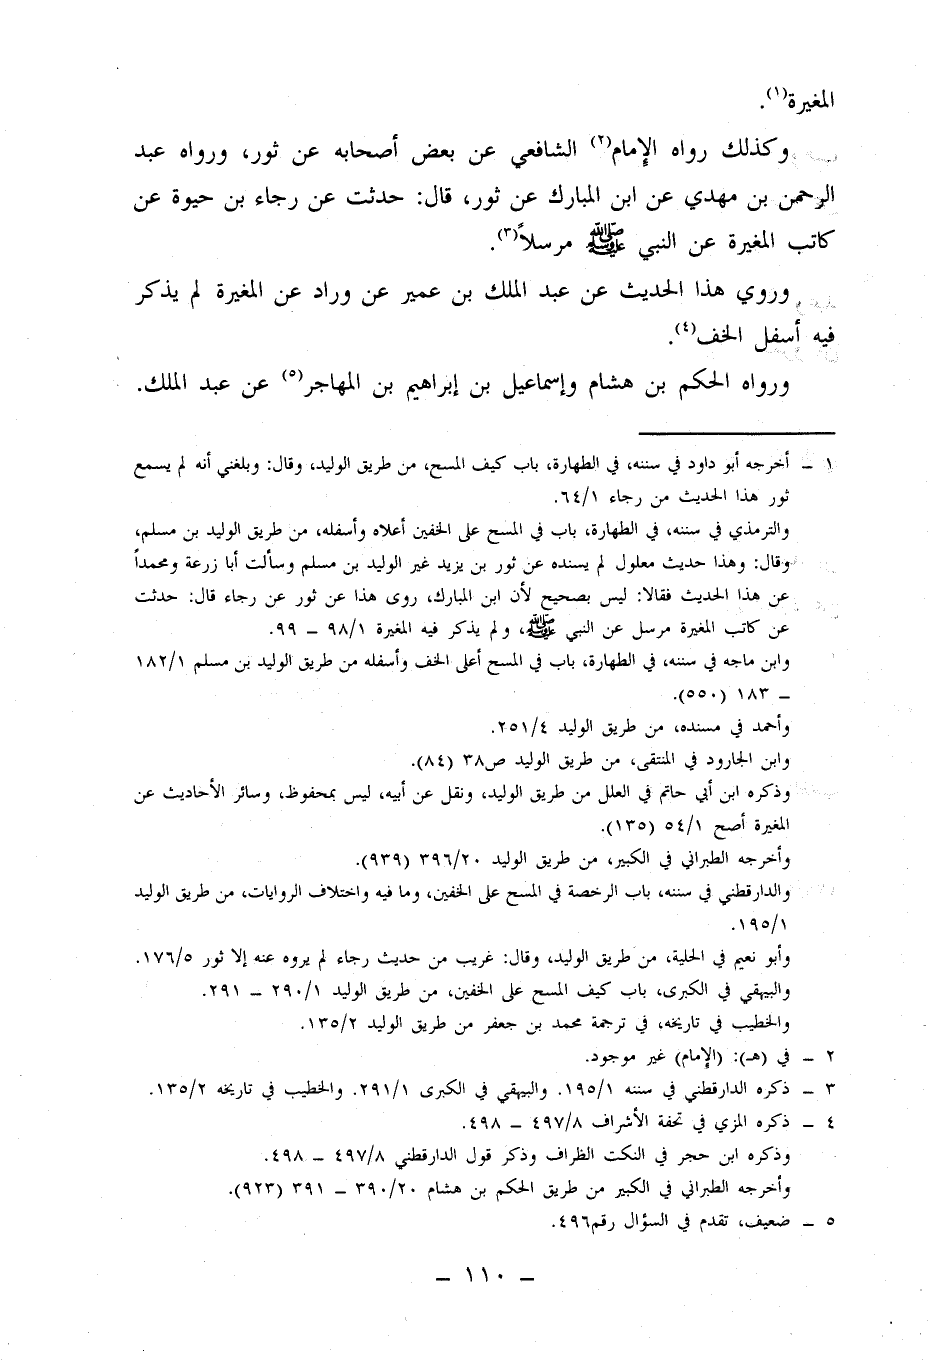 المغيرة(١).
وكذلك رواه الإمام(٢) الشافعي عن بعض أصحابه عن ثور، ورواه عبد
الرحمن بن مهدي عن ابن المبارك عن ثور، قال: حدثت عن رجاء بن حيوة عن
كاتب المغيرة عن النبي ﷺ مرسلاً(٣).
وروي هذا الحديث عن عبد الملك بن عمير عن وراد عن المغيرة لم يذكر
فيه أسفل الخف(٤).
ورواه الحكم بن هشام وإسماعيل بن إبراهيم بن المهاجر(٥) عن عبد الملك.
١ – أخرجه أبو داود في سننه، في الطهارة، باب كيف المسح، من طريق الوليد، وقال: وبلغني أنه لم يسمع
ثور هذا الحديث من رجاء ٦٤/١.
والترمذي في سننه، في الطهارة، باب في المسح على الخفين أعلاه وأسفله، من طريق الوليد بن مسلم،
وقال: وهذا حديث معلول لم يسنده عن ثور بن يزيد غير الوليد بن مسلم وسألت أبا زرعة ومحمداً
عن هذا الحديث فقالا: ليس بصحيح لأن ابن المبارك، روى هذا عن ثور عن رجاء قال: حدثت
عن كاتب المغيرة مرسل عن النبي ﷺ، ولم يذكر فيه المغيرة ٩٨/١ – ٩٩.
وابن ماجه في سننه، في الطهارة، باب في المسح أعلى الخف وأسفله من طريق الوليد بن مسلم ١٨٢/١
– ١٨٣ (٥٥٠).
وأحمد في مسنده، من طريق الوليد ٢٥١/٤.
وابن الجارود في المنتقى، من طريق الوليد ص٣٨ (٨٤).
وذكره ابن أبي حاتم في العلل من طريق الوليد، ونقل عن أبيه، ليس بمحفوظ، وسائر الأحاديث عن
المغيرة أصح ٥٤/١ (١٣٥).
وأخرجه الطبراني في الكبير، من طريق الوليد ٣٩٦/٢٠ (٩٣٩).
والدارقطني في سننه، باب الرخصة في المسح على الخفين، وما فيه واختلاف الروايات، من طريق الوليد
١٩٥/١.
وأبو نعيم في الحلية، من طريق الوليد، وقال: غريب من حديث رجاء لم يروه عنه إلا ثور ١٧٦/٥.
والبيهقي في الكبرى، باب كيف المسح على الخفين، من طريق الوليد ٢٩٠/١ – ٢٩١.
والخطيب في تاريخه، في ترجمة محمد بن جعفر من طريق الوليد ١٣٥/٢.
٢ – في (هـ): (الإمام) غير موجود.
٣ – ذكره الدارقطني في سننه ١٩٥/١. والبيهقي في الكبرى ٢٩١/١. والخطيب في تاريخه ١٣٥/٢.
٤ – ذكره المزي في تحفة الأشراف ٤٩٧/٨ – ٤٩٨.
وذكره ابن حجر في النكت الظراف وذكر قول الدارقطني ٤٩٧/٨ – ٤٩٨.
وأخرجه الطبراني في الكبير من طريق الحكم بن هشام ٣٩٠/٢٠ – ٣٩١ (٩٢٣).
٥ – ضعيف، تقدم في السؤال رقم٤٩٦.
– ١١٠ –